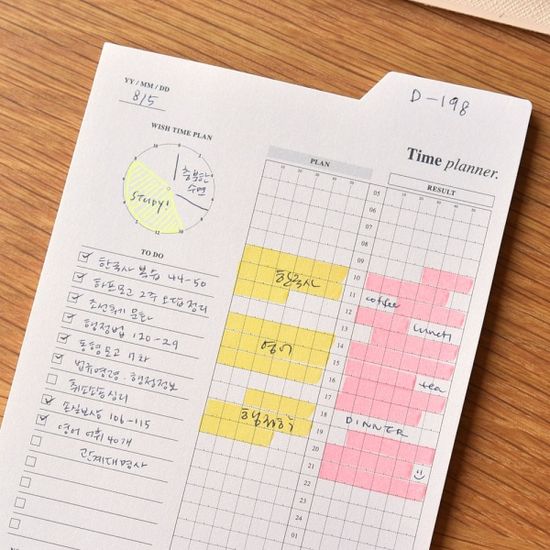 D-198
YY / MM / DD
8/5
WISH TIME PLAN
충분한
수면
STUDY!
Time planner.
PLAN
RESULT
10 20 30 40 50
10 20 30 40 50
05
06
07
08
09
10
11
12
13
14
15
16
17
18
19
20
21
22
23
24
01
한국사
영어
행정학
coffee
lunch
tea
DINNER
TO DO
한국사 복습 44-50
하프모고 2주 오답정리
조선후기 문화
행정법 120-29
법취영명 행정정보
106-115
영어 어휘 40개
관계대명사